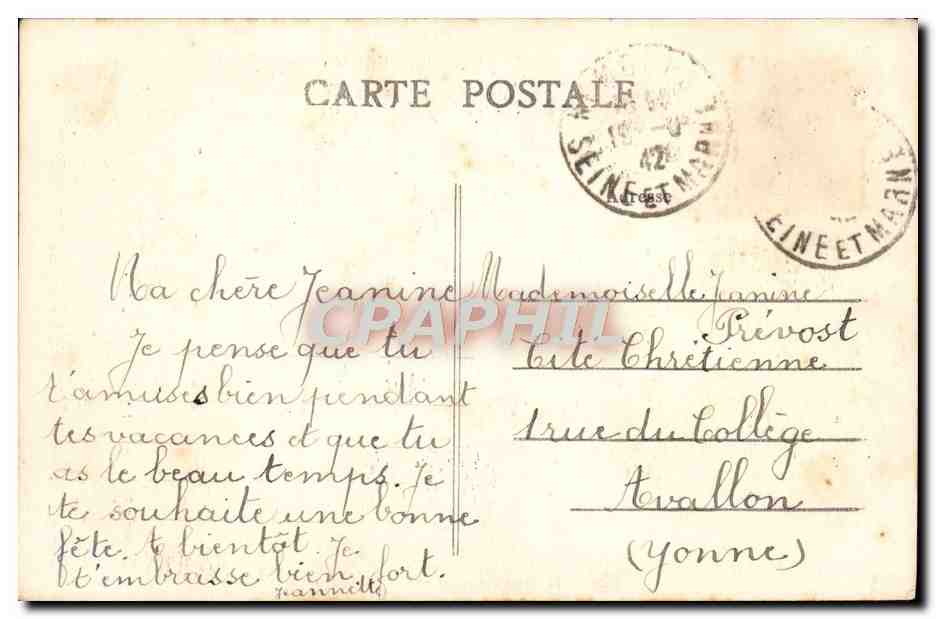 CARTE POSTALE
42
SEINE ET MARNE
EINE ET MARNE
Adresse
Ma chère Jeanine
Je pense que tu
t'amuses bien pendant
tes vacances et que tu
as le beau temps. Je
te souhaite une bonne
fête. A bientôt. Je
t'embrasse bien fort.
Jeannette
Mademoiselle Janine
Prévost
Cité Chrétienne
1 rue du Collège
Avallon
(Yonne)
CPAPHIL